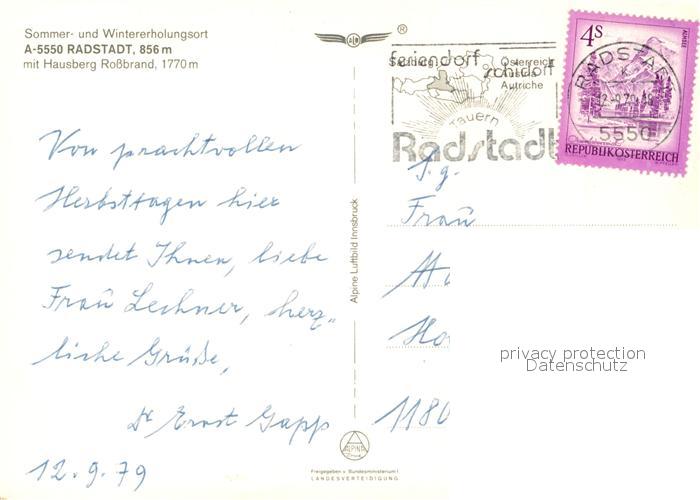 Sommer- und Wintererholungsort
A-5550 RADSTADT, 856 m
mit Hausberg Roßbrand, 1770 m
Von prachtvollen
Herbsttagen hier
sendet Ihnen, liebe
Frau Lechner, herz„
liche Grüße,
Dr Ernst Gapp
12.9.79
ALM
®
Alpine Luftbild Innsbruck
ALPINE
Freigegeben v. Bundesministerium f.
LANDESVERTEIDIGUNG
feriendorf
schidorf
Österreich
Austria
Autriche
Tauern
Radstadt
RADSTADT
5550
4S
ALMSEE
REPUBLIK ÖSTERREICH
S.g.
Frau
1180
privacy protection
Datenschutz